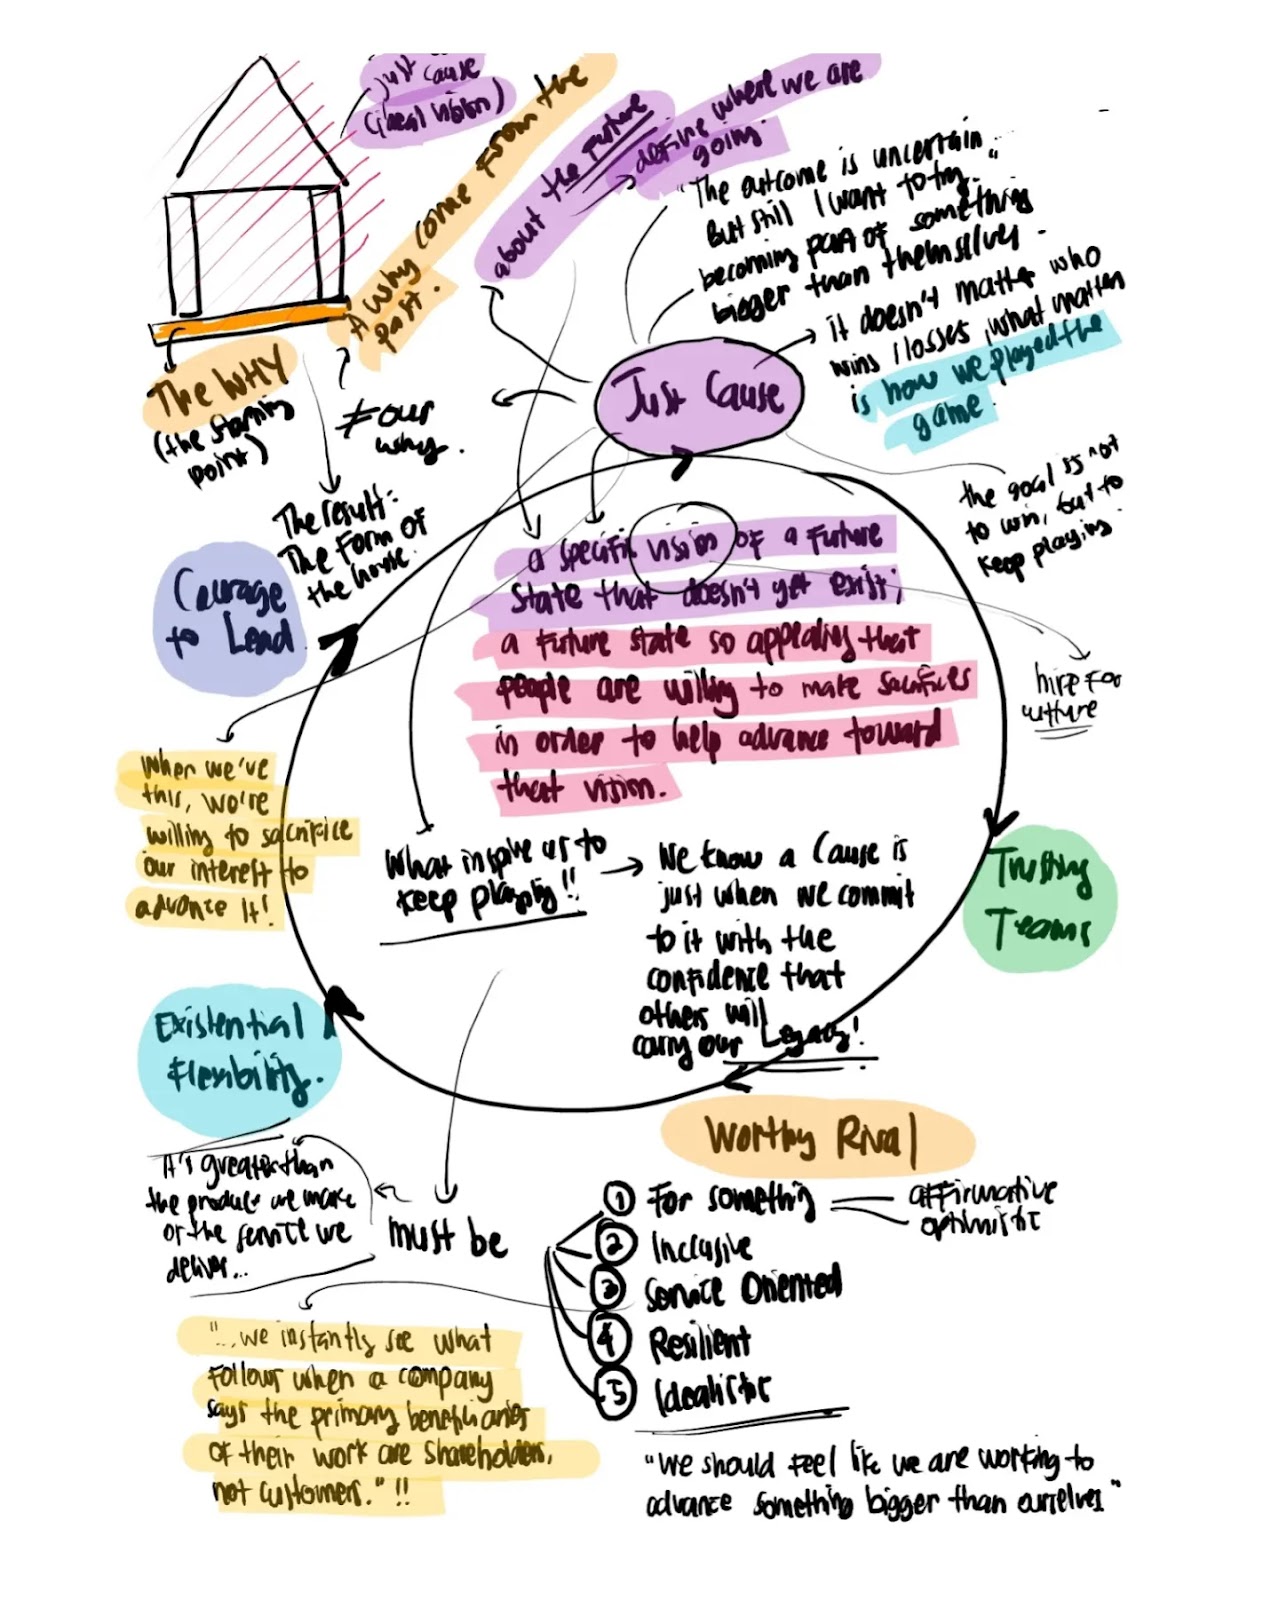 just cause
(ideal vision)
A why come from the
past.
about the future
define where we are
going.
"The outcome is uncertain
But still I want to try."
becoming part of something
bigger than themselves.
it doesn't matter who
wins / losses, what matter
is how we played the
game.
The WHY
(the starting
point)
≠ our
why.
Just Cause
the goal is not
to win, but to
keep playing.
The result:
The form of
the house.
Courage
to Lead
a specific vision of a future
state that doesn't yet exist;
a future state so appealing that
people are willing to make sacrifices
in order to help advance toward
that vision.
hire for
culture
When we've
this, we're
willing to sacrifice
our interest to
advance it!
What inspire us to
keep playing!!
We know a Cause is
just when we commit
to it with the
confidence that
others will
carry our Legacy!
Trusting
Teams
Existential
Flexibility.
Worthy Rival
It's greater than
the product we make
or the service we
deliver...
must be
1 For something
affirmative
optimistic
2 Inclusive
3 Service Oriented
4 Resilient
5 Idealistic
"...we instantly see what
follow when a company
says the primary beneficiaries
of their work are shareholders,
not customers." !!
"We should feel like we are working to
advance something bigger than ourselves"